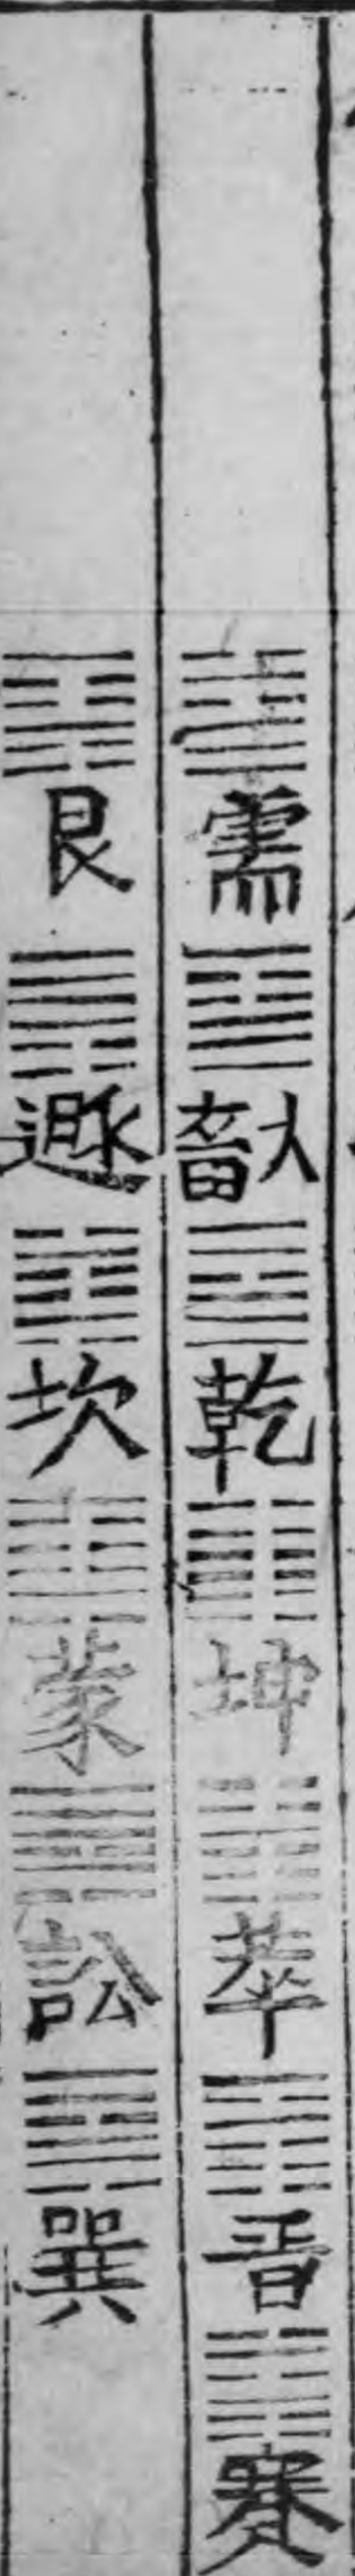 ䷄需䷙大畜䷀乾䷁坤䷬萃䷢晉䷦蹇
䷳艮䷠遯䷜坎䷃蒙䷅訟䷸巽